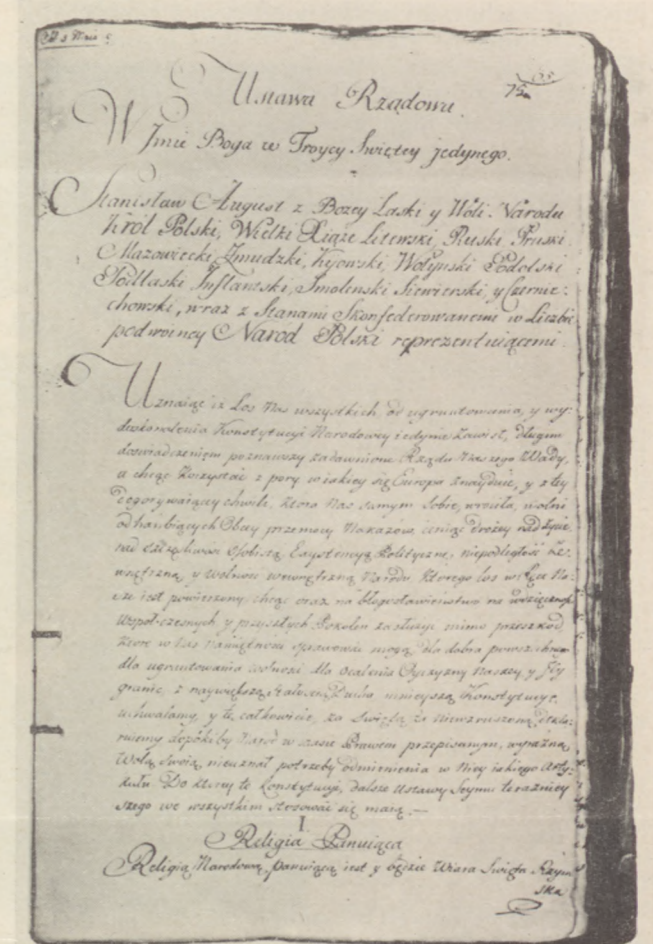 Ustawa Rządowa.
W Jmie Boga w Troycy Swiętey jedynego.
Stanisław August z Bozey Łaski y Woli Narodu
Król Polski, Wielki Xiąże Litewski, Ruski Pruski
Mazowiecki, Zmudzki, Kijowski, Wołynski Podolski
Podlaski Inflantski, Smolenski Siewierski, y Czernie-
chowski, wraz z Stanami Skonfederowanemi w Liczbie
podwoiney Narod Polski reprezentuiącemi.
Uznaiąc iż Los Nas wszystkich, od ugruntowania, y wy-
doskonalenia Konstytucyi Narodowey iedynie zawisł, długim
doswiadczeniem poznawszy zadawnione Rządu Naszego Wady,
a chcąc korzystać z pory w iakiey się Europa znayduie, y z tey
dogorywaiącey chwili, ktora Nas samym Sobie wrociła, wolni
od hanbiących Obcey przemocy Nakazow, ceniąc drożey nad życie,
nad szczęśliwosc Osobistą, Exystencyą Polityczną, niepodległość ze-
wnętrzną y wolnosc wewnętrzną Narodu, ktorego los w ręce Na-
sze iest powierzony, chcąc oraz na błogosławieństwo na wdzięczność
Wspoł-czesnych y przyszłych Pokolen zasłużyć mimo przeszkod,
ktore w Nas namiętnosci sprawować mogą, dla dobra powszechnego
dla ugruntowania wolnosci dla ocalenia Oyczyzny Naszey, y Jey
granic, z naywiększą stałoscią Ducha ninieyszą Konstytucyę
uchwalamy, y tę całkowicie za Swiętą, za niewzruszoną dekla-
ruiemy, dopókiby Narod w czasie Prawem przepisanym, wyraźną
Wolą Swoią nieuznał potrzeby odmienienia w Niey iakiego Arty-
kułu. Do ktorey to Konstytucyi, dalsze Ustawy Seymu terazniey-
szego we wszystkiem stosować się maią.—
I
Religia Panuiąca
Religią Narodową panuiącą iest y będzie Wiara Swięta Rzym
ska